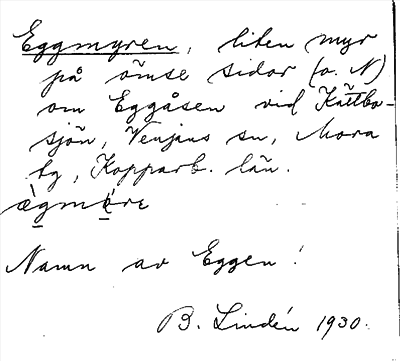 Eggmyren, liten myr
på ömse sidor (o. N)
om Eggåsen vid Kättbo-
sjön, Venjans sn, Mora
tg, Kopparb. län.
Namn av Eggen!
B. Lindén 1930.